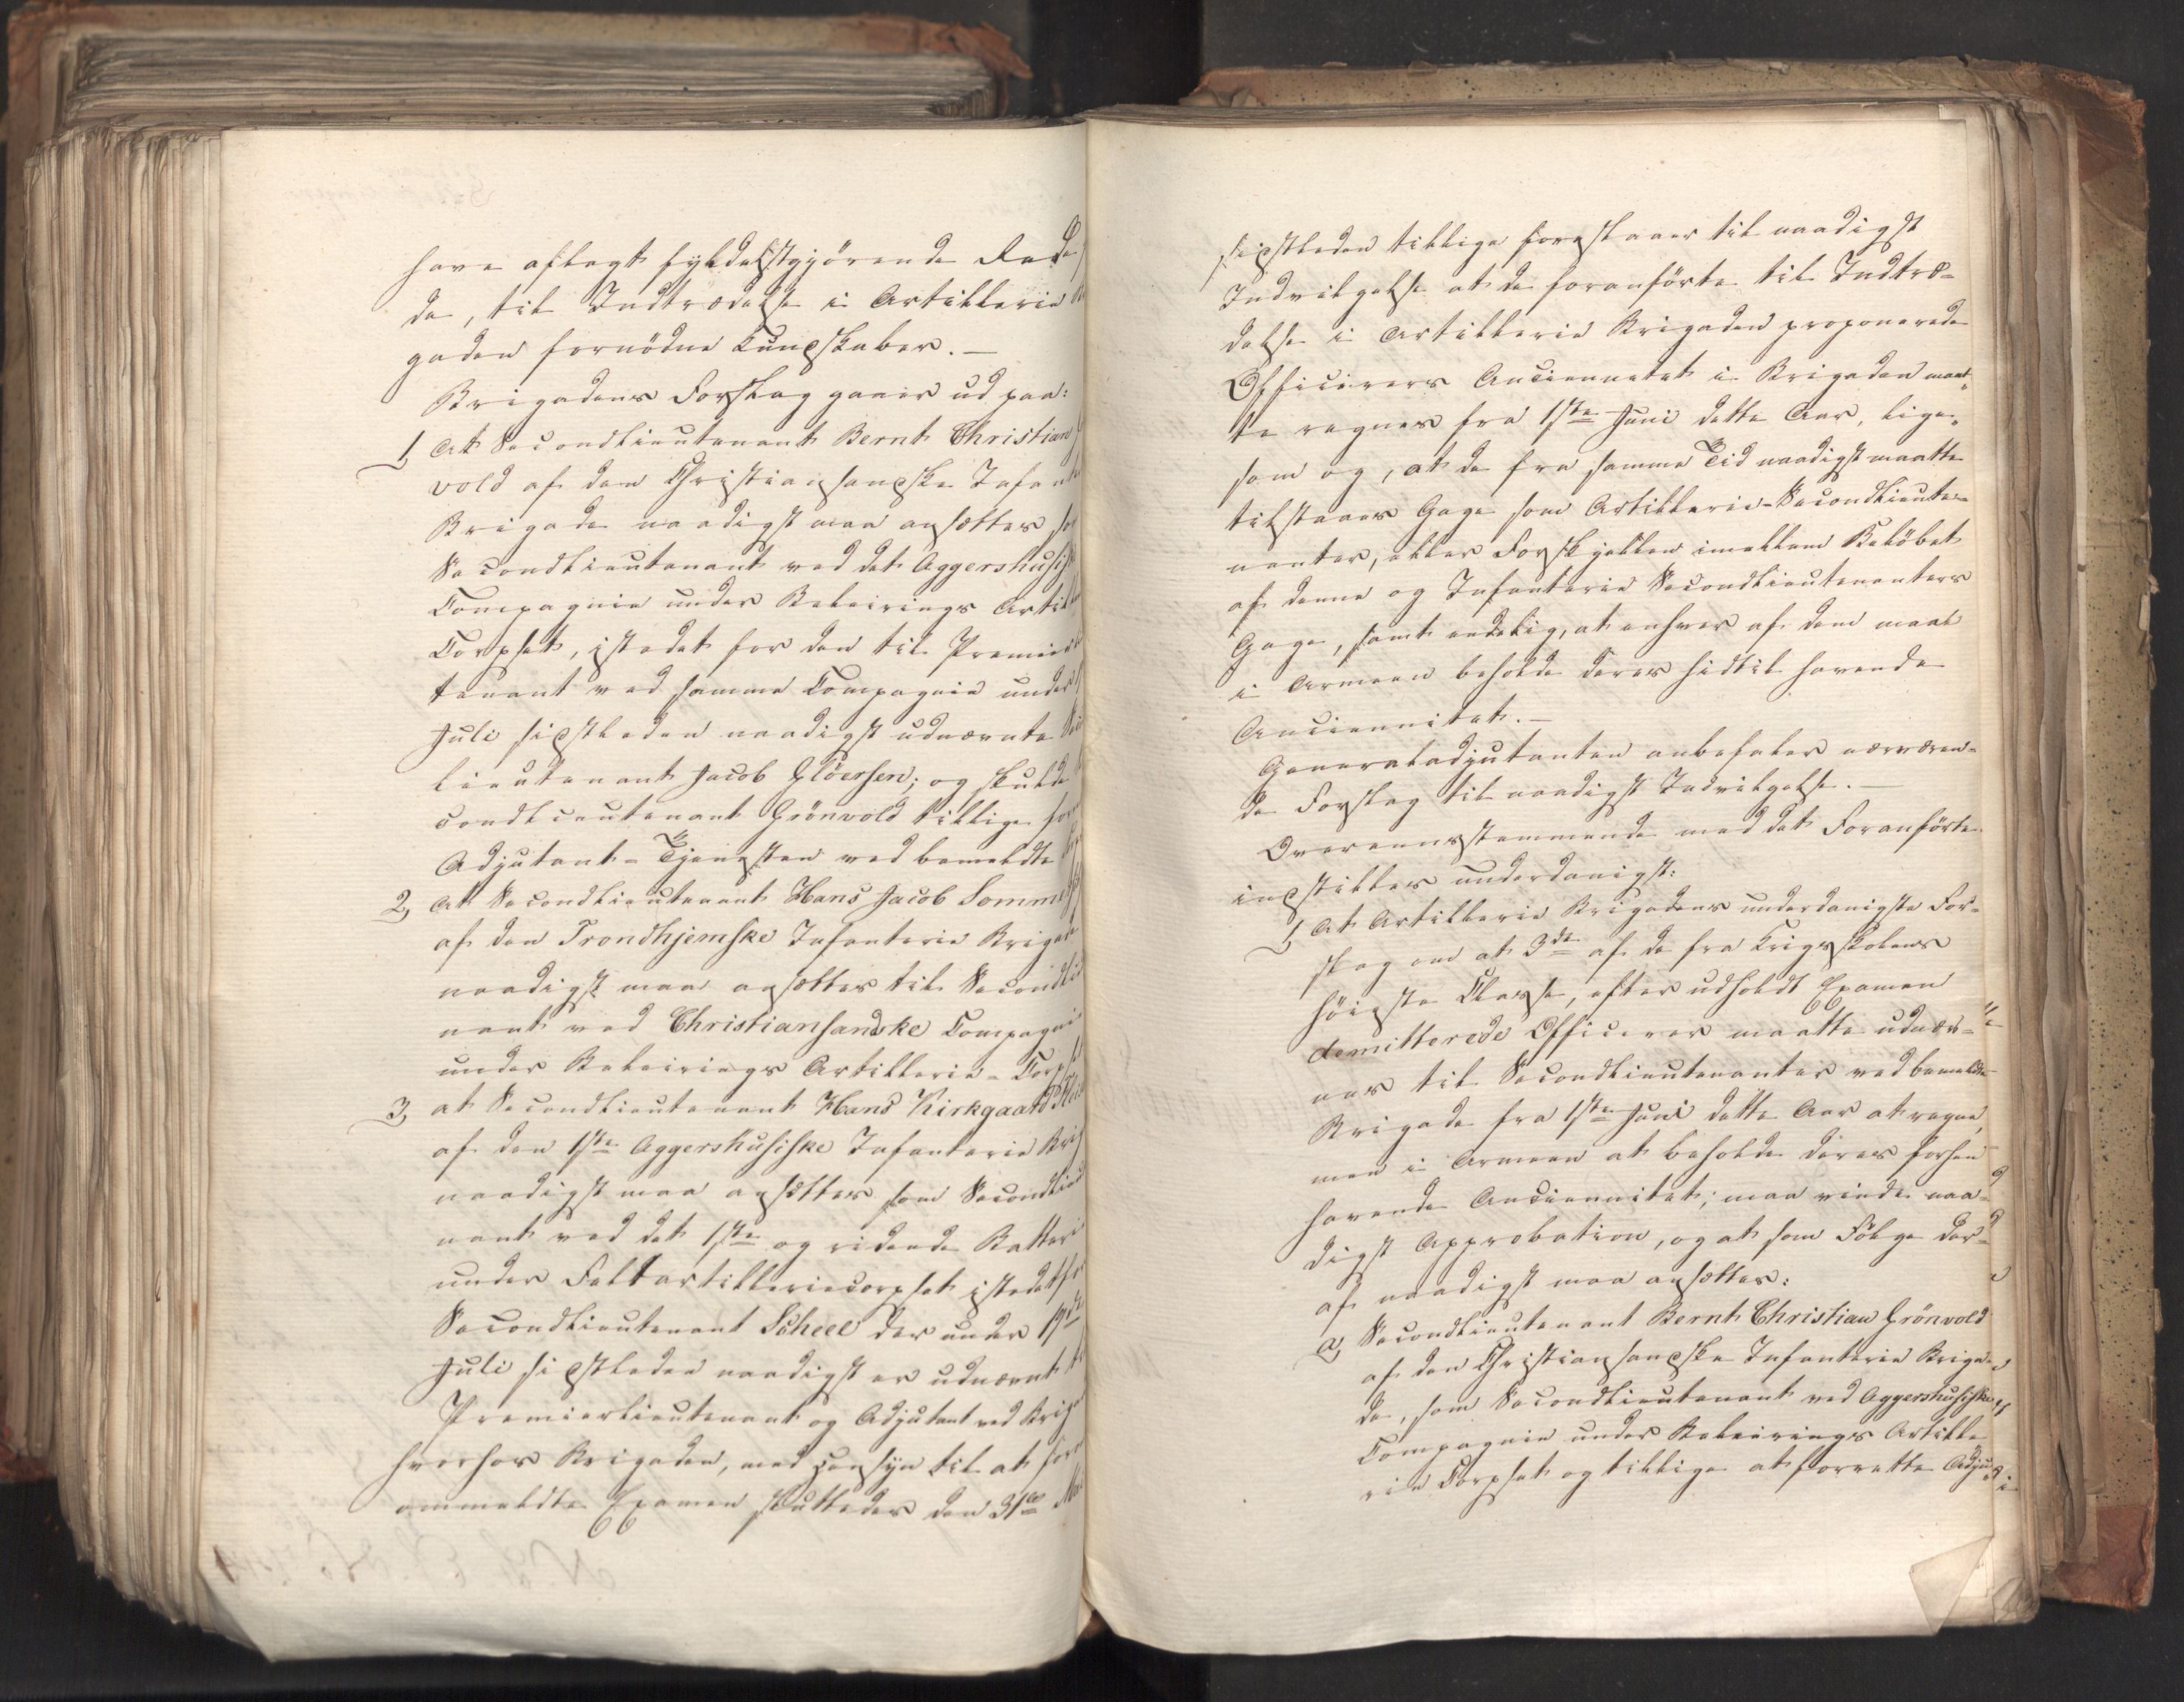 have aflagt fyldestgjörende
de, til Indtrædelse i Artillerie
gaden fornödne Kundskaber. —
Brigadens Forslag gaaer ud paa:
1, At Secondlieutenant Bernt Christian
vold af den Christiansandske Infan
Brigade naadigst maa ansættes
Secondlieutenant ved det Aggershusi
Compagnie under Beleirings Artil
Corpset, istedet for den til Premier
tenant ved samme Compagnie under
Juli sidstleden naadigst udnævnte
lieutenant Jacob Glöersen; og skulde
condlieutenant Grönvold tillige for
Adjutant-Tjenesten ved bemeldte
2, At Secondlieutenant Hans Jacob Somme
af den Trondhjemske Infanterie Brigade
naadigst maa ansættes til Secondli
nant ved Christiansandske Compagni
under Beleirings Artillerie-Corps
3, at Secondlieutenant Hans Kirkgaard
af den 1ste Aggershusiske Infanterie Brig
naadigst maa ansættes som Secondlieu
nant ved det 1ste og ridende Batteri
under Feltartilleriecorpset istedetfor
Secondlieutenant Scheel der under 19de
Juli sidstleden naadigst er udnævnt
Premierlieutenant og Adjutant ved Briga
hvorhos Brigaden, med Hensyn til at for
ommeldte Examen sluttedes den 31te Mai
sidstleden tillige foreslaaer til naadigst
Indvilgelse at de foranförte til Indtræ-
delse i Artillerie Brigaden proponerede
Officierers Anciennetet i Brigaden maat-
te regnes fra 1ste Juni dette Aar, lige-
som og, at de fra samme Tid naadigst maatte
tilstaaes Gage som Artillerie-Secondlieute-
nanter, eller Forskjellen imellem Belöbet
af denne og Infanterie Secondlieutenanters
Gage, samt endelig, at enhver af dem maae
i Armeen beholde deres hidtil havende
Anciennitet. —
Generaladjutanten anbefaler nærværen-
de Forslag til naadigst Indvilgelse. —
Overeensstemmende med det Foranförte
indstilles underdanigst:
1, At Artillerie Brigadens underdanigste For-
slag om at 3de af de fra Krigsskolens
höieste Classe, efter udholdt Examen
demitterede Officerer maatte udnæv-
nes til Secondlieutenanter ved bemeldte
Brigade fra 1ste Juni dette Aar at regne,
men i Armeen at beholde deres forhen
havende Anciennitet; maa vinde naa-
digst Approbation, og at som Fölge der-
af naadigst maa ansættes:
a, Secondlieutenant Bernt Christian Grönvold
af den Christiansandske Infanterie Briga-
de, som Secondlieutenant ved Aggershusiske
Compagnie under Beleirings Artille-
rie Corpset og tillige at forrette Adju